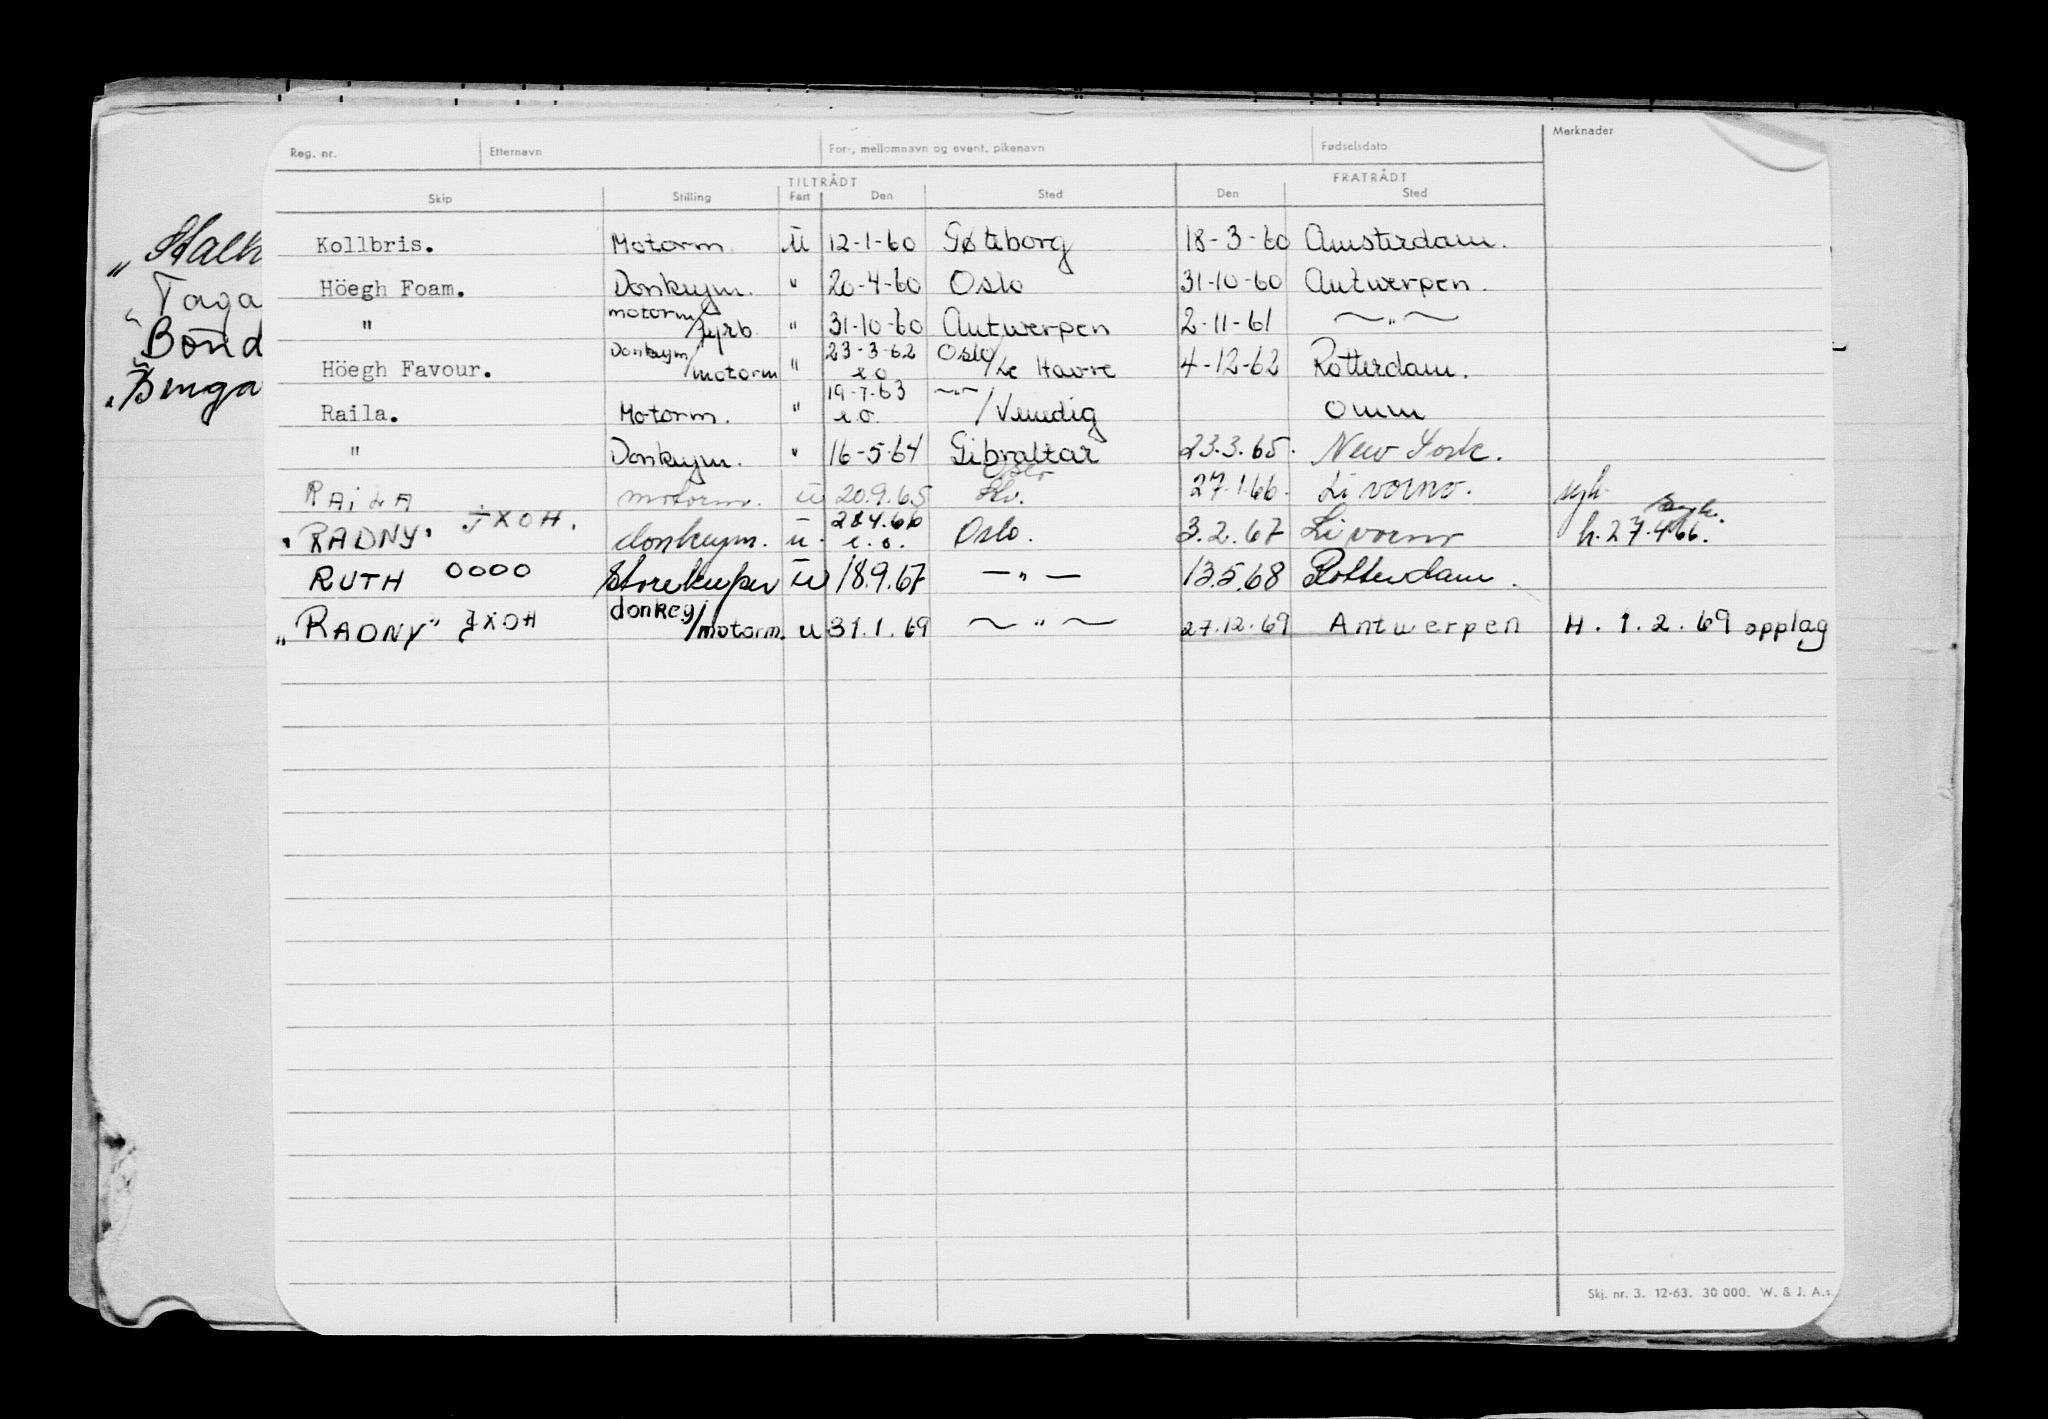 Reg. nr. Etternavn For-, mellomnavn og event. pikenavn Fødselsdato Merknader
TILTRÅDT FRATRÅDT
Skip Stilling Fart Den Sted Den Sted
Kollbris. Motorm. u 12-1-60 Gøteborg 18-3-60 Amsterdam.
Höegh Foam. Donkeym. " 20-4-60 Oslo 31-10-60 Antwerpen.
" motorm/fyrb. " 31-10-60 Antwerpen 2-11-61 — " —
Höegh Favour. Donkeym/motorm " 23-3-62 e.o Oslo/Le Havre 4-12-62 Rotterdam.
Raila. Motorm. " 19-7-63 e.o. —"—/Venedig Omm
" Donkeym. " 16-5-64 Gibraltar 23.3.65. New York.
RAiLA motorm. u 20.9.65 Oslo 27.1.66. Livorno. syk.
"RADNY" JXOH. donkeym. u. 28.4.66 e.o. Oslo. 3.2.67 Livorno h. 27.4.66.
RUTH OOOO Storekeeper u 18.9.67 — " — 13.5.68 Rotterdam.
"RADNY" JXOH donkey/motorm. u 31.1.69 — " — 27.12.69 Antwerpen H. 1.2.69 opplag
"Stalh
"Taga
Bond
"Benga
Skj. nr. 3. 12-63. 30 000. W. & J. A.s.